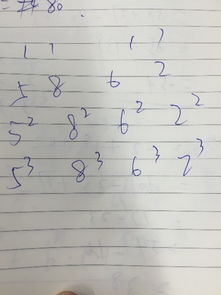 80.
1 1 1 1
5 8 6 2
5² 8² 6² 2²
5³ 8³ 6³ 2³